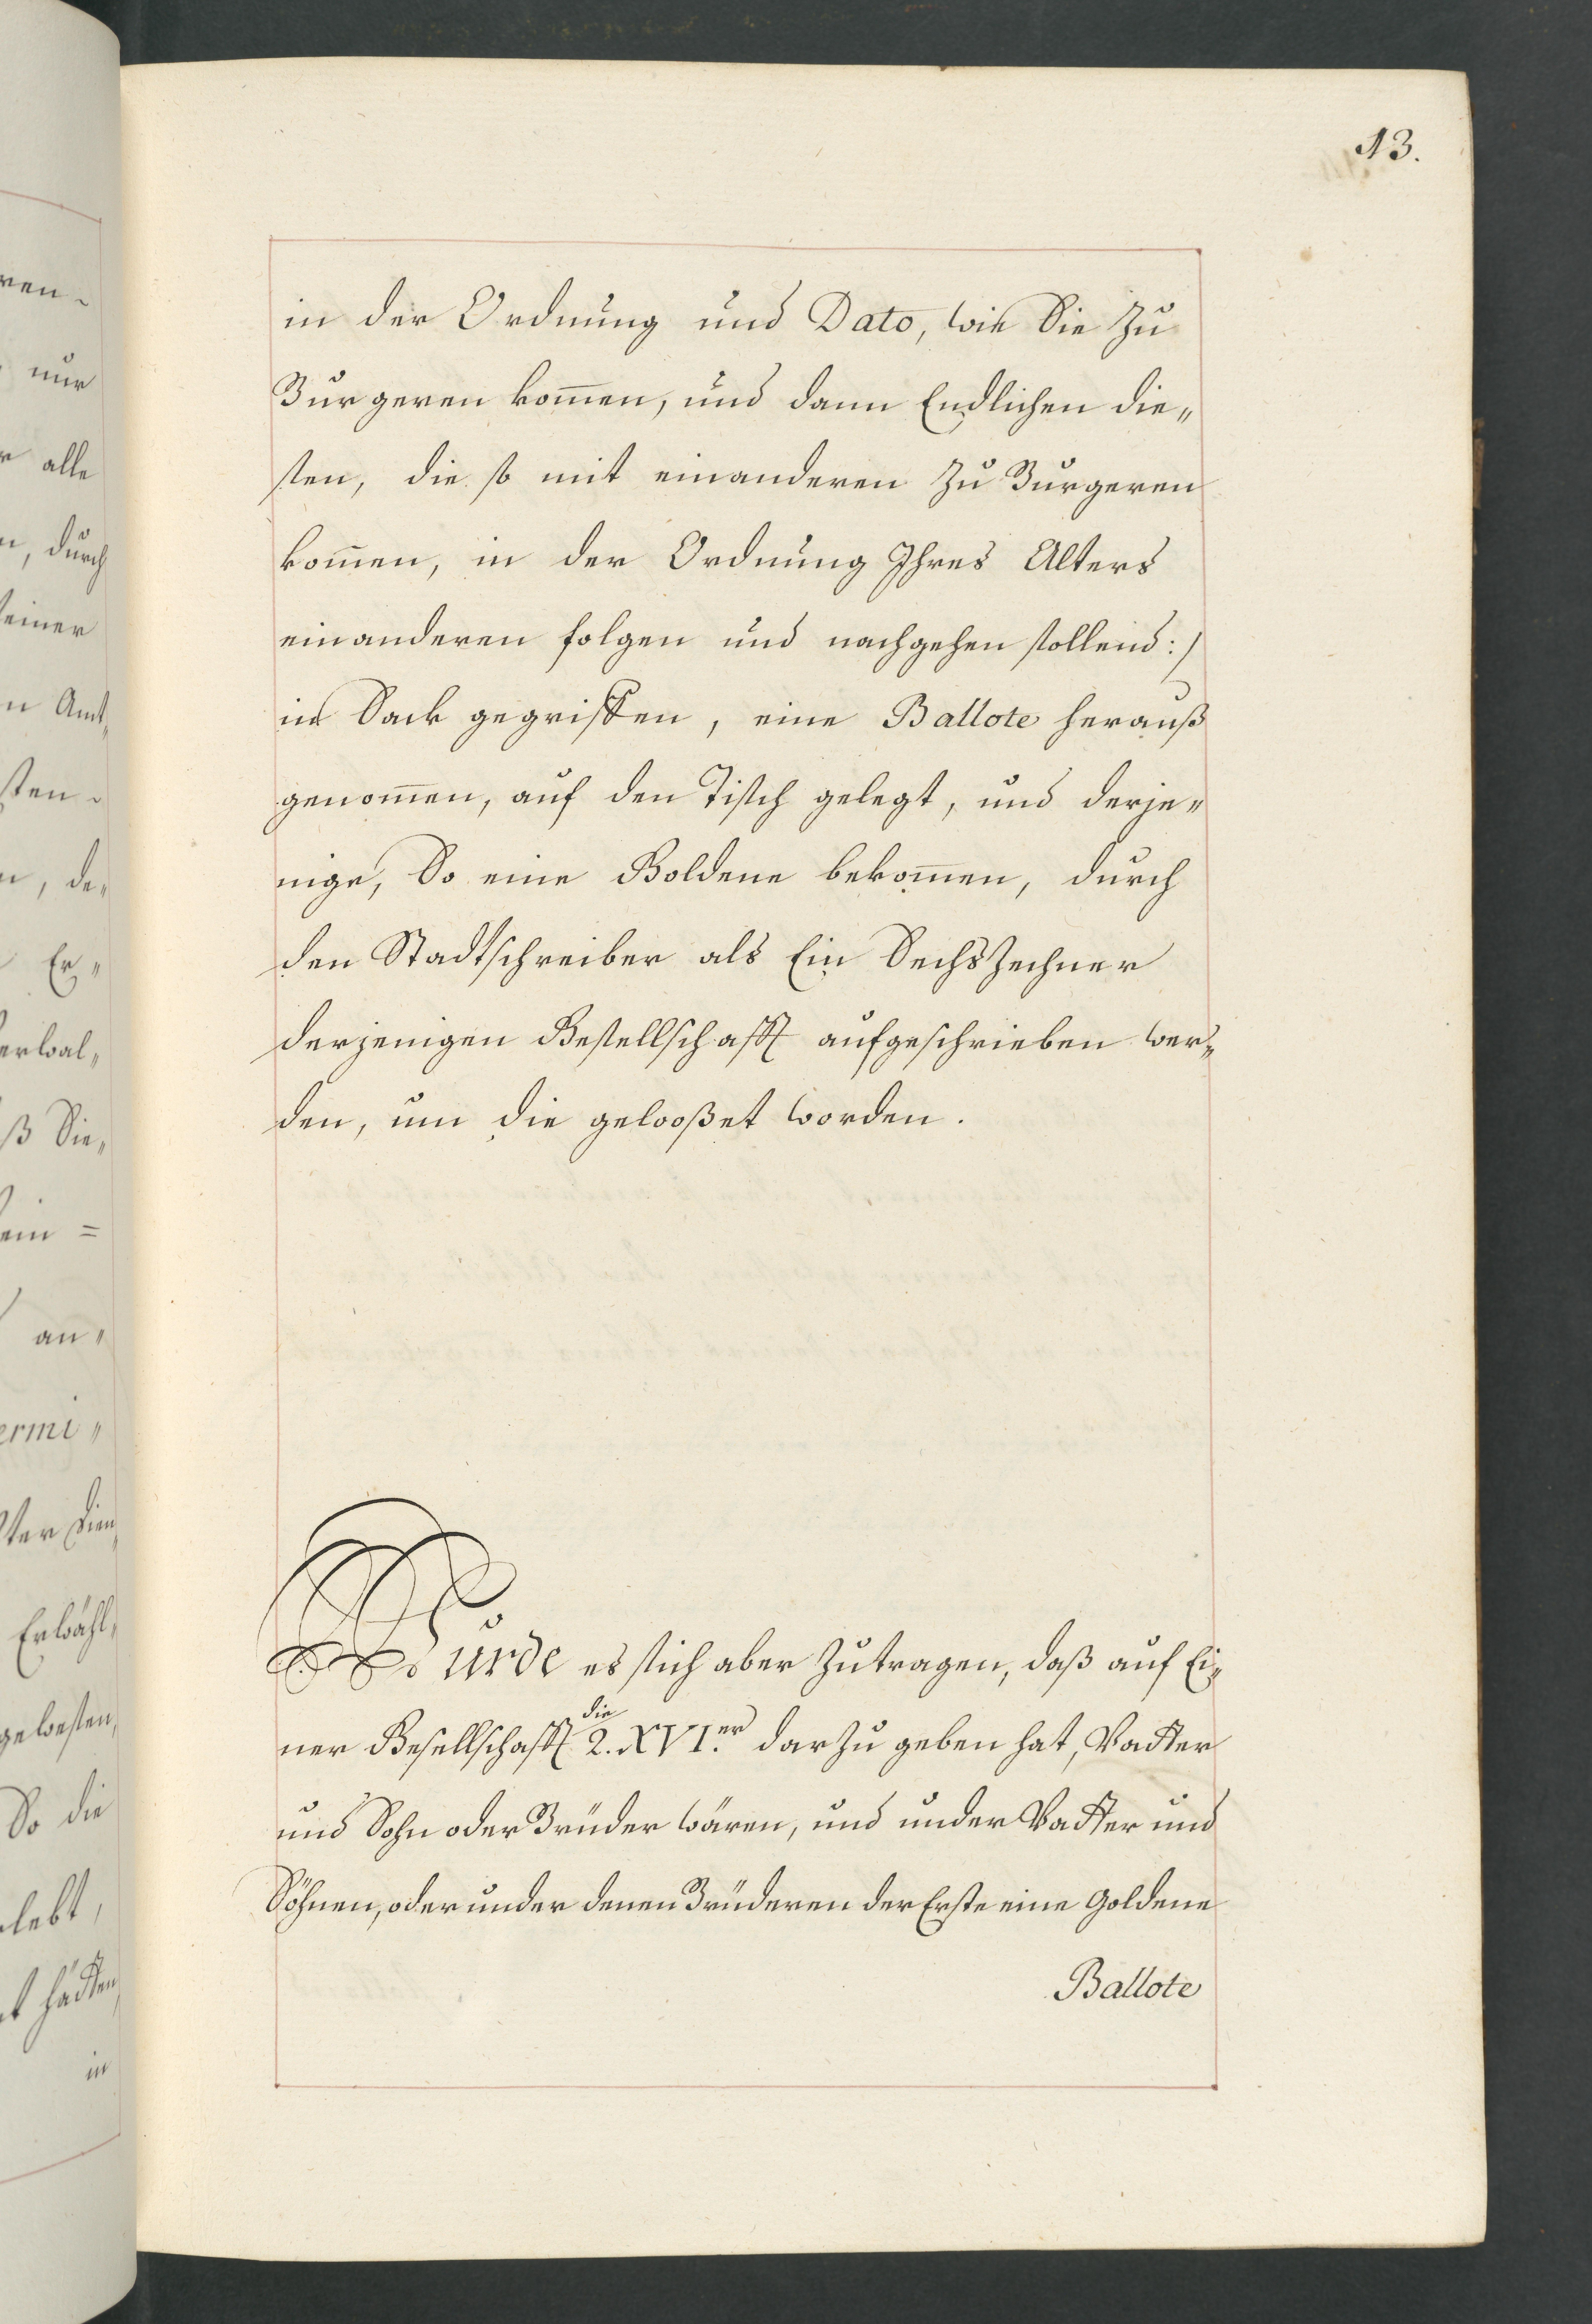 13.
in der Ordnung und Dato, wie Sie Zu
Burgeren kom̄en, und dann Endlichen die„
sen, die so mit einanderen Zu Burgeren
kom̄en, in der Ordnung Ihres Alters
einanderen folgen und nachgehen sollend:/
in Sack gegriffen, eine Ballote herauß
genom̄en, auf den Tisch gelegt, und derje„
nige, So eine Goldene bekom̄en, durch
den Stadtschreiber als Ein SechsZechner
derjenigen Gesellschafft aufgeschrieben wer„
den, um die gelooßet worden.
Wurde es sich aber Zutragen, daß auf Ei„
ner Gesellschafft die 2. XVI.er darZu geben hat, Vatter
und Sohn oder Brüder wären, und under Vatter und
Söhnen, oder under denen Brüderen der Erste eine Goldene
Ballote